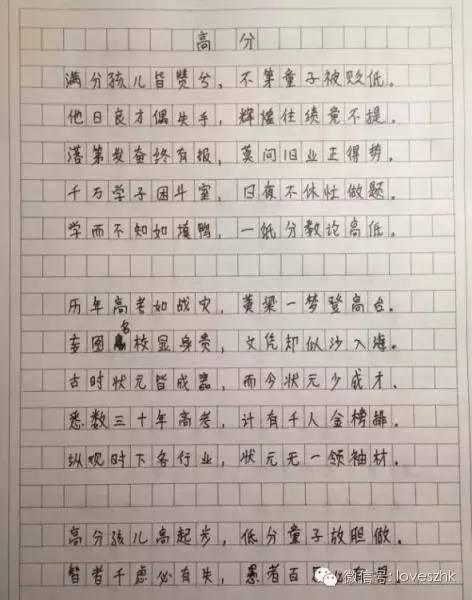 高分
满分孩儿皆赞兮，不第童子被贬低。
他日良才偶失手，辉煌往绩竟不提。
落第发奋终有报，莫问旧业正得势。
千万学子困斗室，日夜不休忙做题。
学而不知如填鸭，一纸分数论高低。
历年高考如战灾，黄梁一梦登高台。
名校显身贵，文凭却似沙入海。
古时状元皆成器，而今状元少成才。
悉数三十年高考，计有千人金榜排。
纵观时下各行业，状元无一领袖材。
高分孩儿高起步，低分童子放胆做。
智者千虑必有失，愚者百
微信号: loveszhk